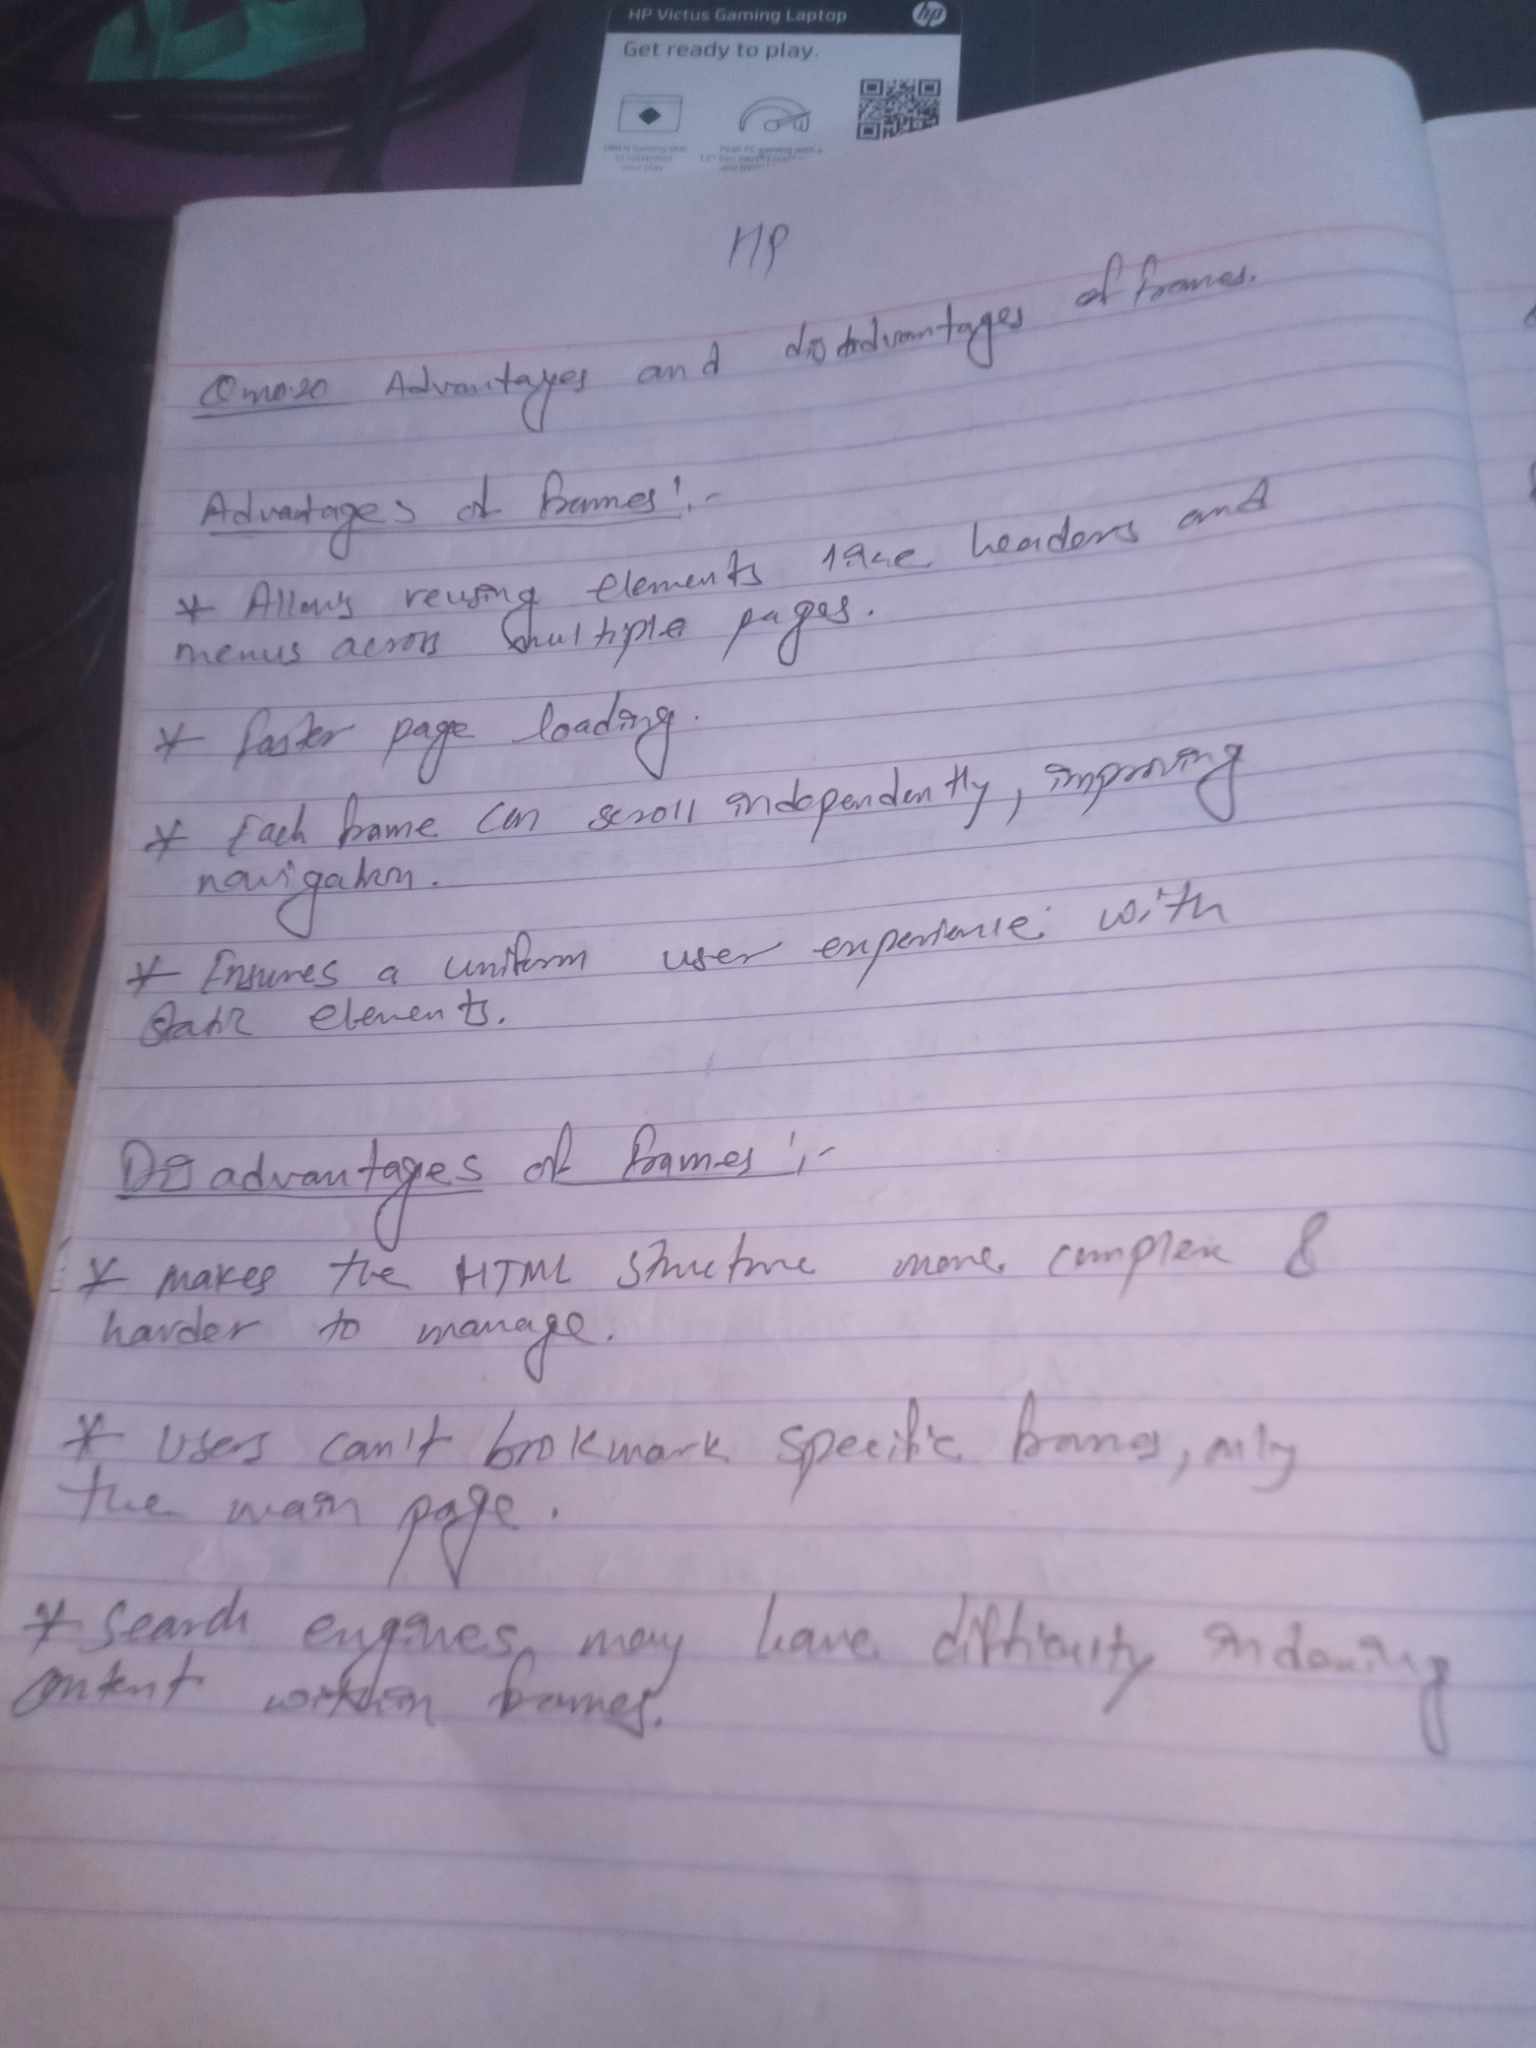 HP Victus Gaming Laptop
hp
Get ready to play.
HP
Q.no.20 Advantages and disadvantages of frames.
Advantages of frames :-
* Allows reusing elements like headers and
menus across multiple pages.
* faster page loading.
* Each frame can scroll independently, improving
navigation.
* Ensures a uniform user experience with
static elements.
Disadvantages of frames :-
* makes the HTML structure more complex &
harder to manage.
* Users can't bookmark specific frames, only
the main page.
* Search engines may have difficulty indexing
content within frames.